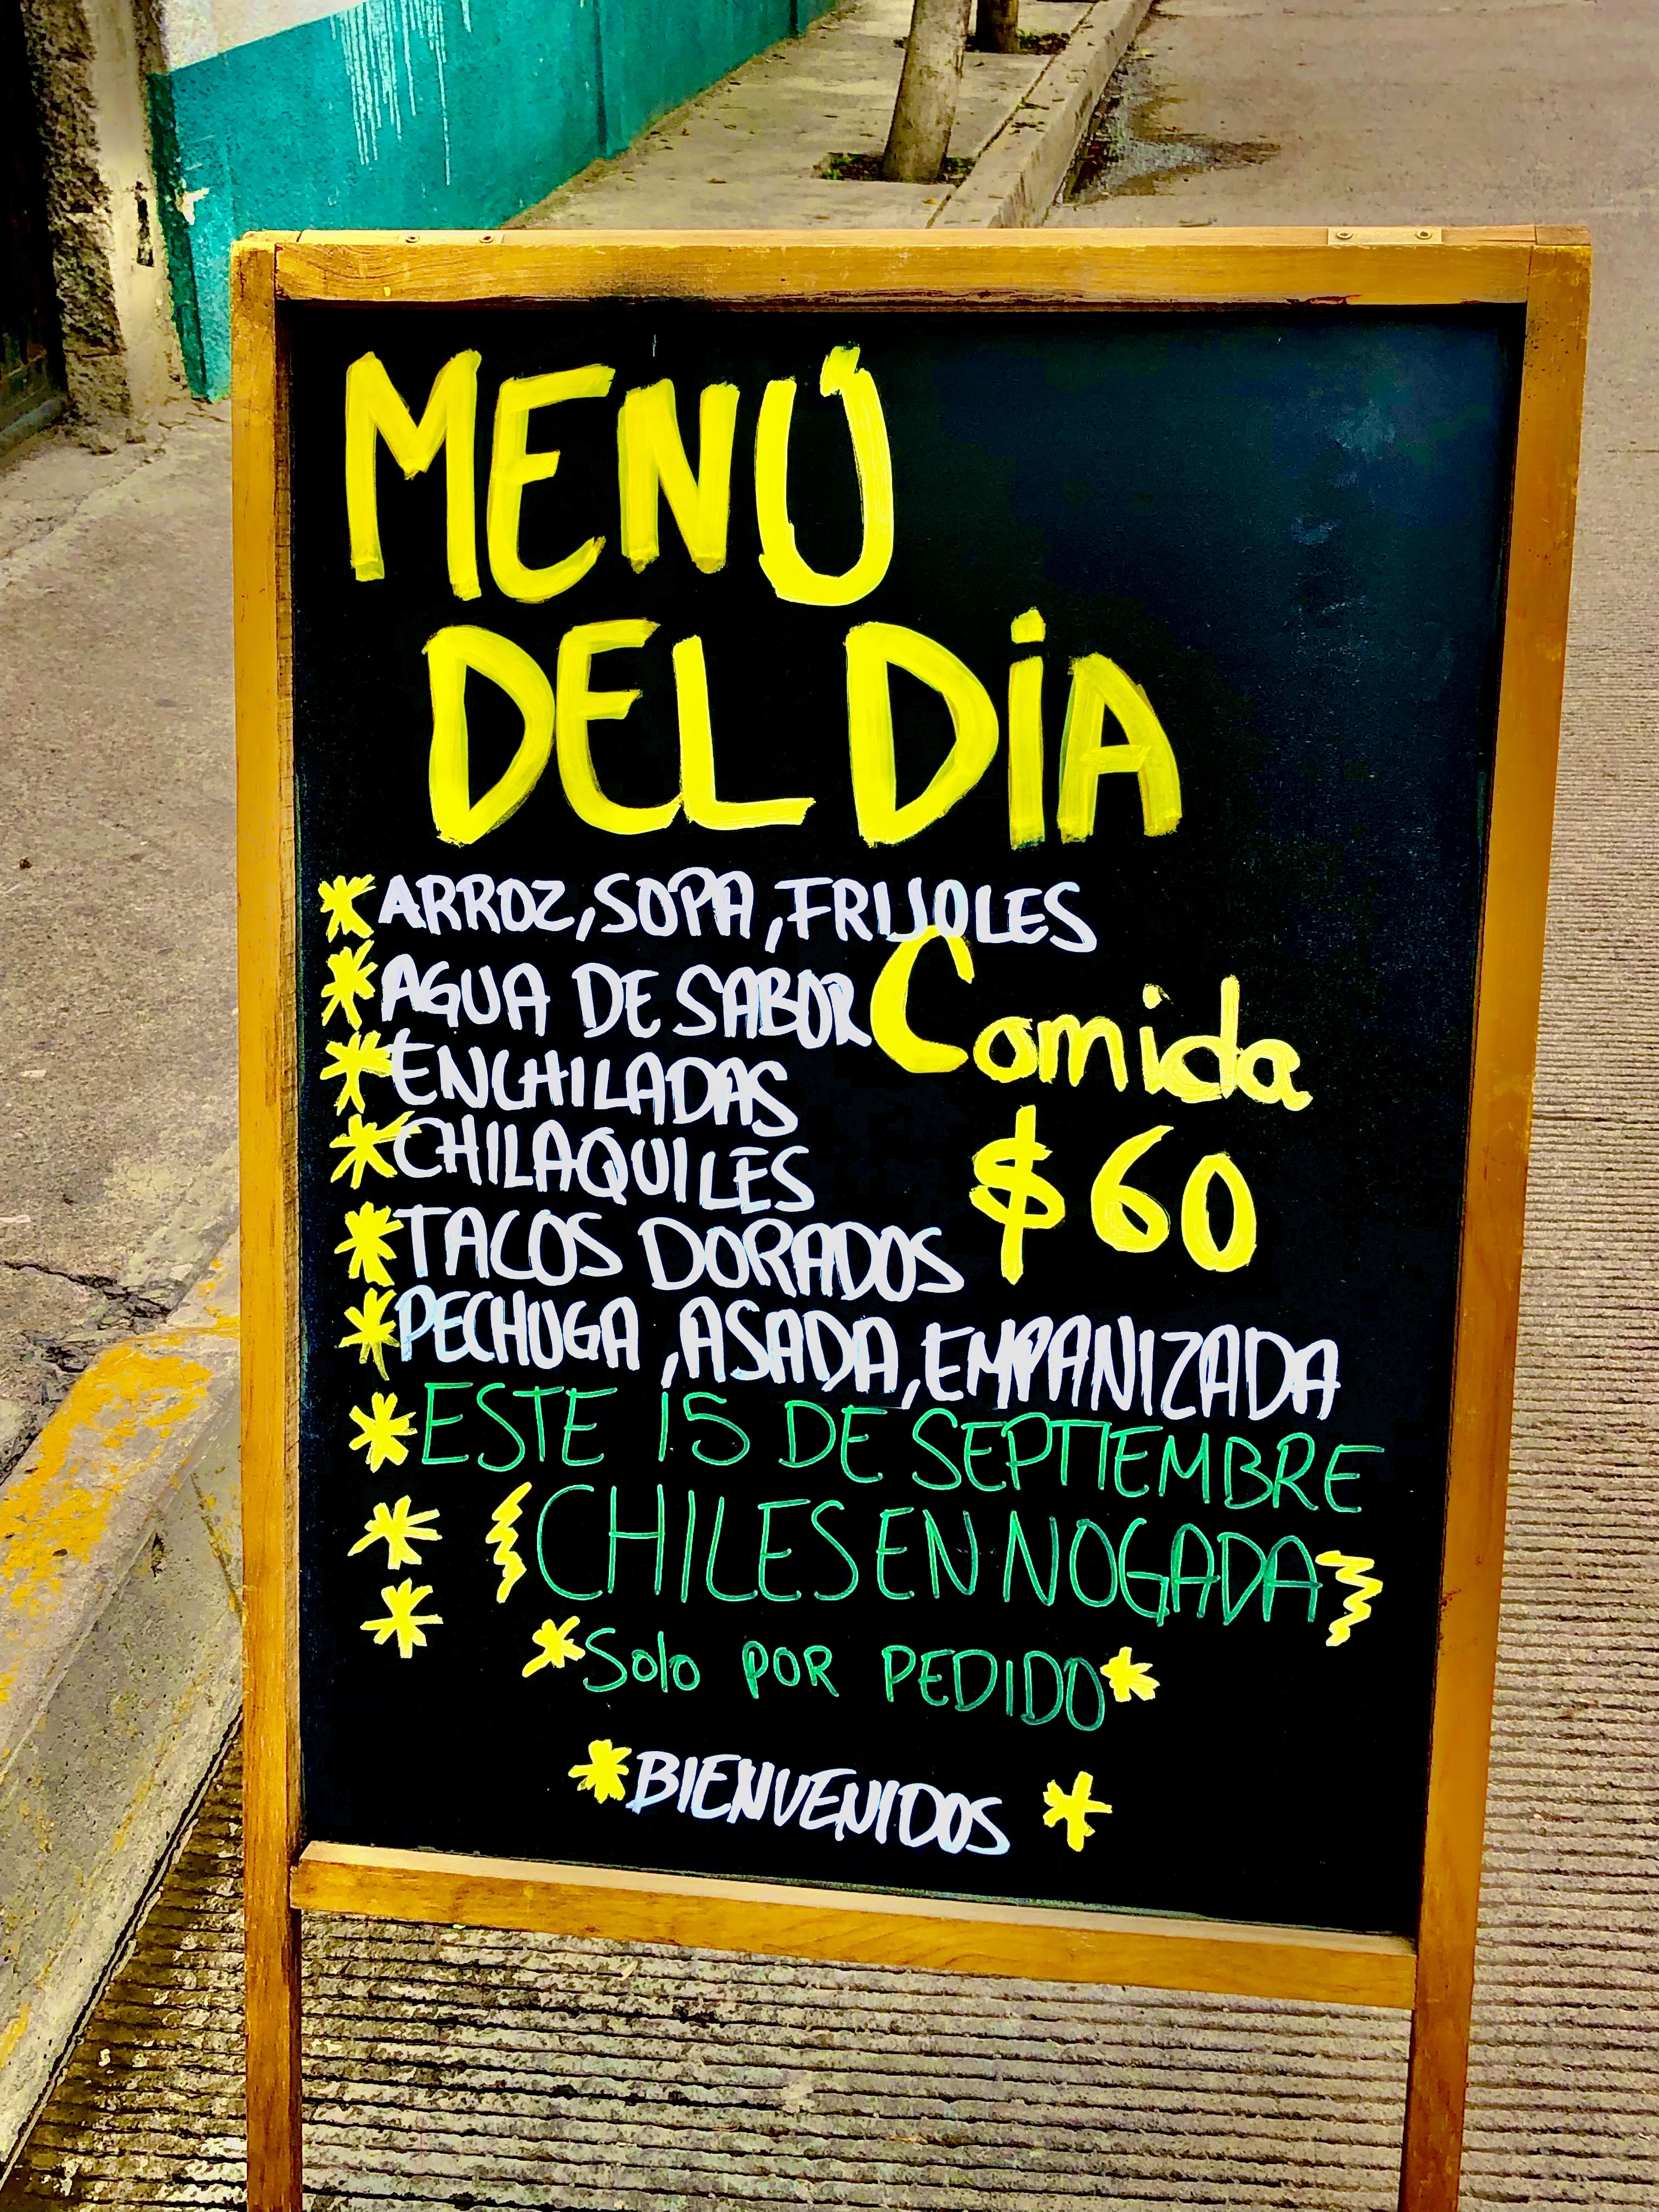 MENÚ
DEL DÍA
*ARROZ, SOPA, FRIJOLES
*AGUA DE SABOR
*ENCHILADAS
*CHILAQUILES
*TACOS DORADOS
*PECHUGA, ASADA, EMPANIZADA
Comida
$60
*ESTE 15 DE SEPTIEMBRE
* CHILES EN NOGADA
* *Solo POR PEDIDO*
*BIENVENIDOS *